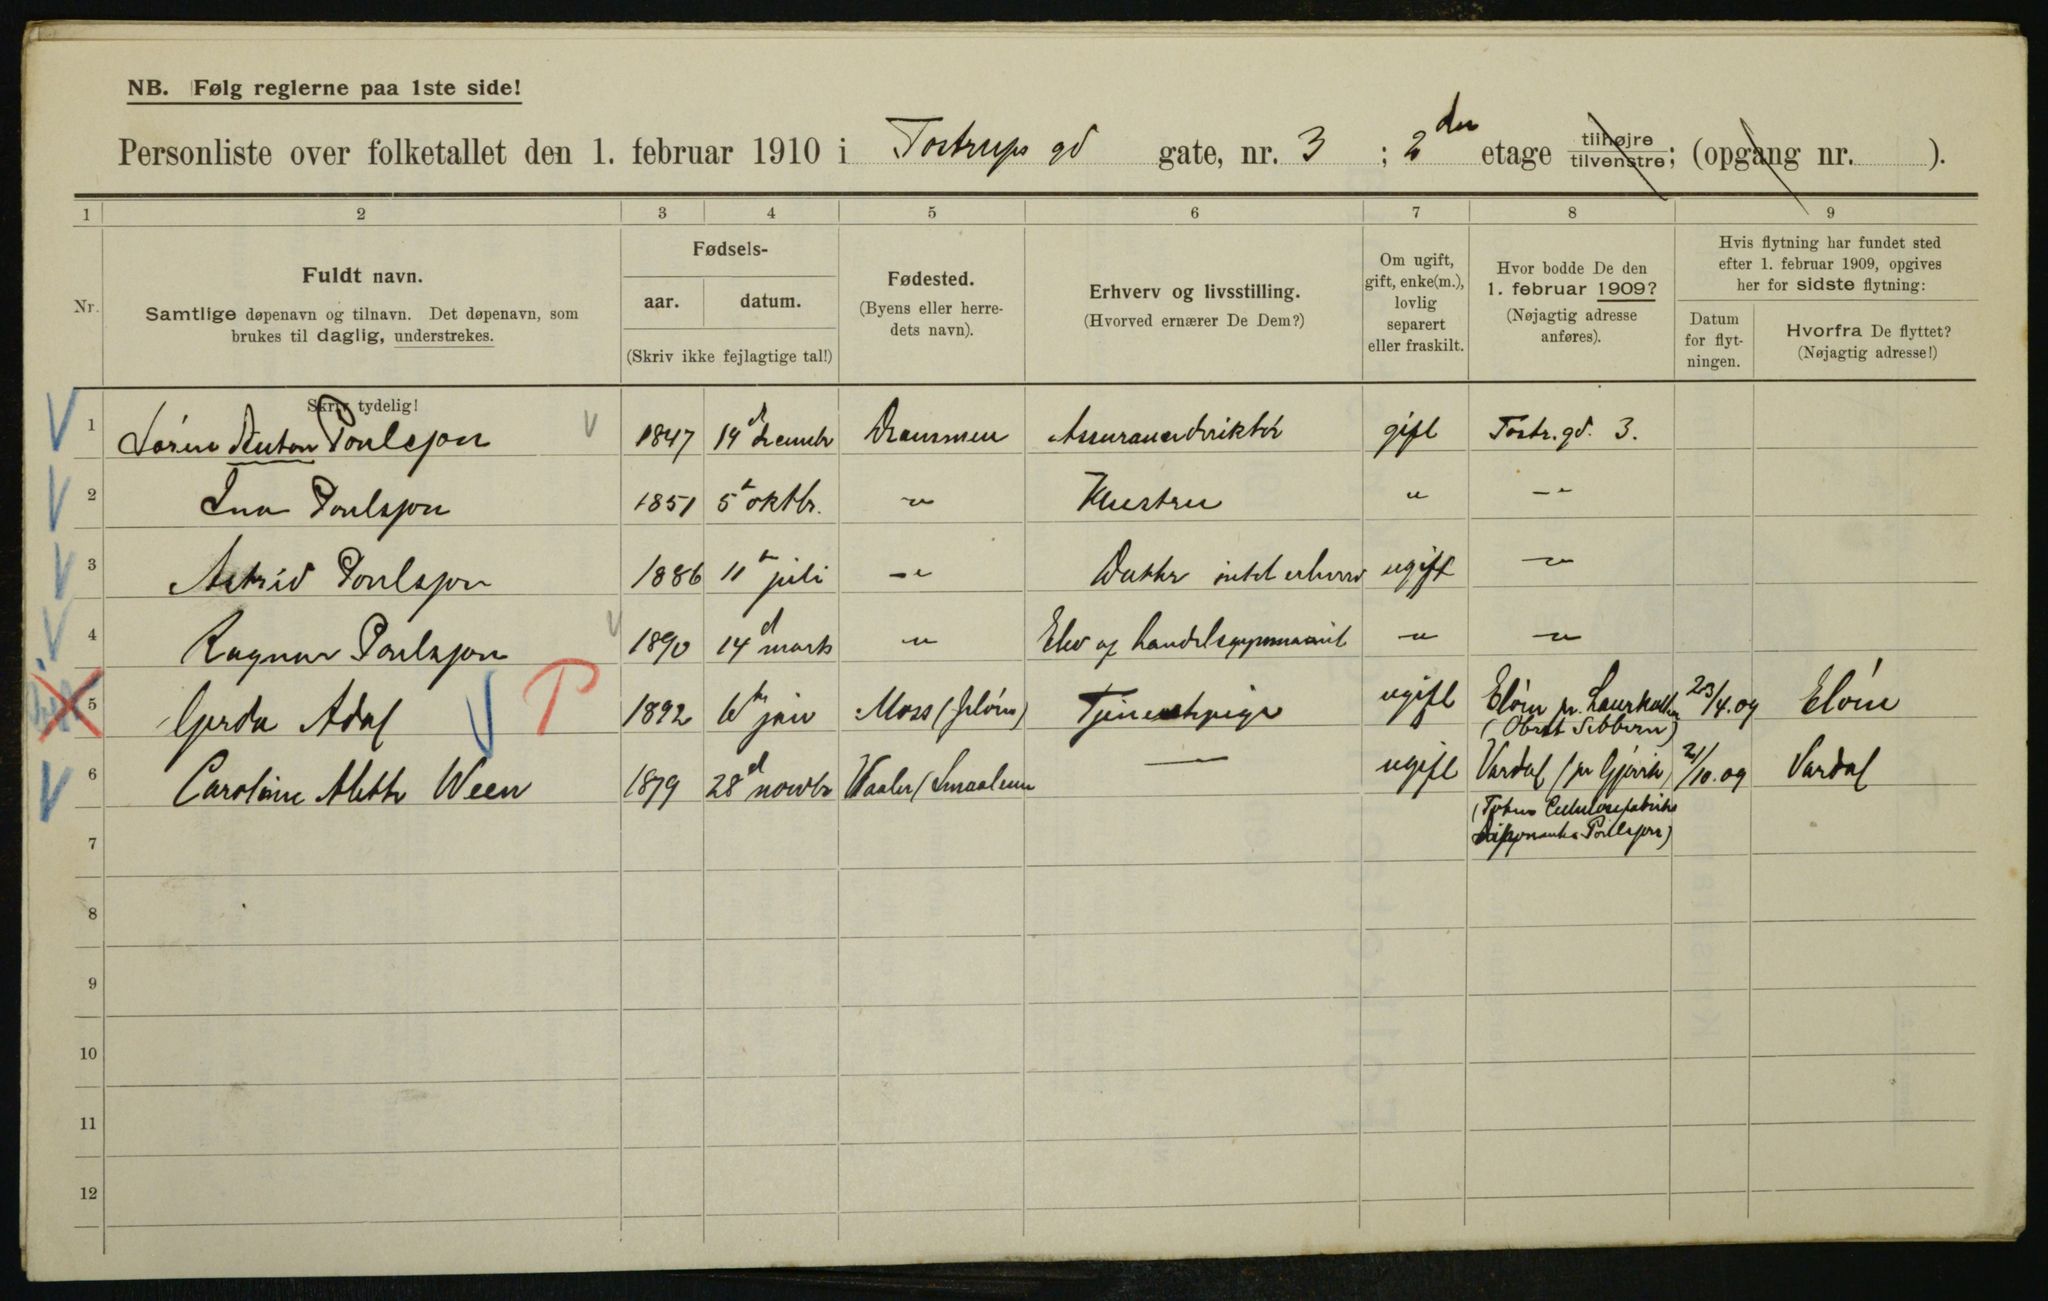 NB. Følg reglerne paa 1ste side!
Personliste over folketallet den 1. februar 1910 i Tostrups gd gate, nr. 3 ; 2den etage tilhøjre tilvenstre; (opgang nr. ).
1 2 3 4 5 6 7 8 9
Nr.
Fuldt navn.
Samtlige døpenavn og tilnavn. Det døpenavn, som
brukes til daglig, understrekes.
Skriv tydelig!
Fødsels-
aar. datum.
(Skriv ikke fejlagtige tal!)
Fødested.
(Byens eller herre-
dets navn).
Erhverv og livsstilling.
(Hvorved ernærer De Dem?)
Om ugift,
gift, enke(m.),
lovlig
separert
eller fraskilt.
Hvor bodde De den
1. februar 1909?
(Nøjagtig adresse
anføres).
Hvis flytning har fundet sted
efter 1. februar 1909, opgives
her for sidste flytning:
Datum
for flyt-
ningen.
Hvorfra De flyttet?
(Nøjagtig adresse!)
1 Sören Anton Poulsson 1847 14d decembr Drammen Assurancedirektör gift Tostr. gd. 3.
2 Ina Poulsson 1851 5t oktbr. -"- Hustru " -"-
3 Astrid Poulsson 1886 11t juli -"- Datter intet erhverv ugift -"-
4 Ragnar Poulsson 1890 14d marts -"- Elev af handelsgymnasiet -"- -"-
5 Gerda Adal P 1892 jan Moss (Jelöen) Tjenestepige ugift Elöen pr. 23/4.09 Elöen
(Oberst Sibbern)
6 Caroline Alette Ween 1879 28d novbr Vaaler (Smaalenene — ugift Vardal (pr Gjövik) 21/10.09 Vardal
(Totens Cellulosefabrik
Disponent Poulsson)
7
8
9
10
11
12